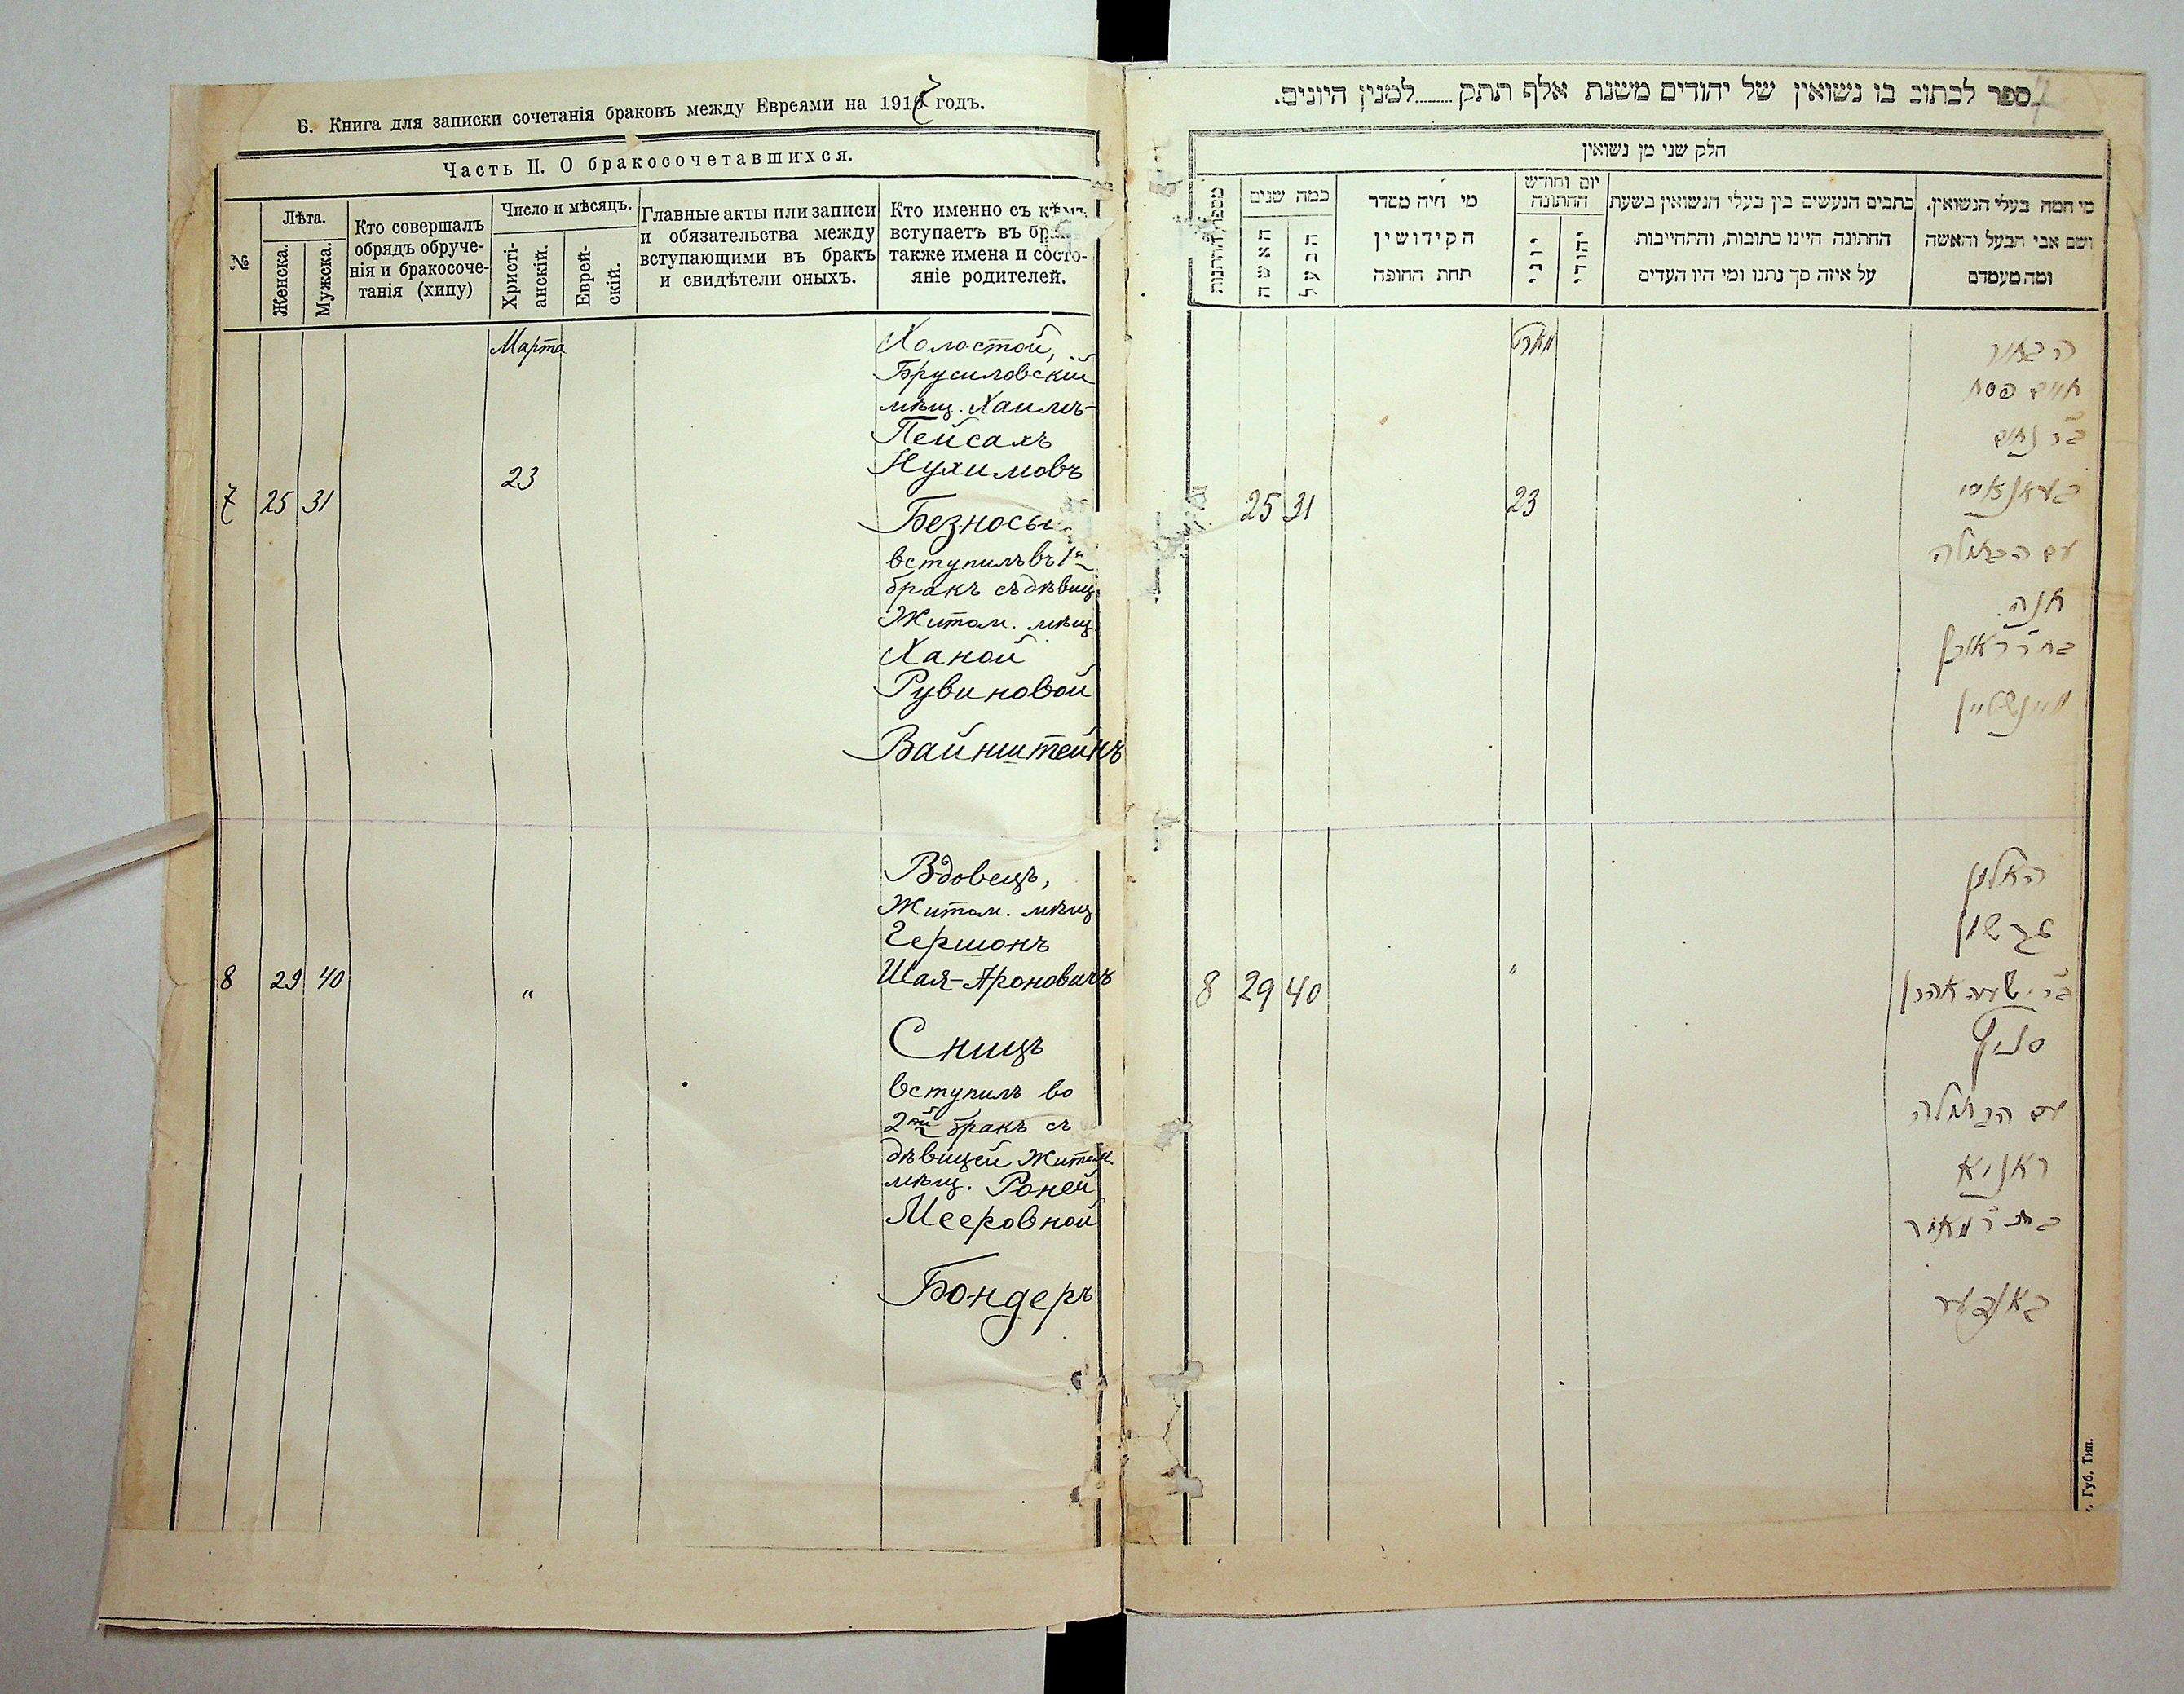 Б. Книга для записки сочетанія браковъ между Евреями на 1917 годъ.
Часть II. О бракосочетавшихся.
№
Лѣта.
Женска.
Мужска.
Кто совершалъ
обрядъ обруче-
нія и бракосоче-
танія (хипу)
Число и мѣсяцъ.
Христі-
анскій.
Еврей-
скій.
Главные акты или записи
и обязательства между
вступающими въ бракъ
и свидѣтели оныхъ.
Кто именно съ кѣмъ
вступаетъ въ бракъ
также имена и состо-
яніе родителей.
Марта
Холостой,
Брусиловскій
мѣщ. Хаимъ-
Пейсахъ
Нухимовъ
7 25 31 23
Безносы
вступилъ въ 1й
бракъ съ дѣвиц.
Житом. мѣщ.
Ханой
Рувиновой
Вайнштейнъ
Вдовецъ,
Житом. мѣщ.
Гершонъ
8 29 40 "
Шая-Ароновичъ
Сницъ
вступилъ во
2ой бракъ съ
дѣвицей Житом.
мѣщ. Роней
Мееровной
Бондеръ
ספר לכתוב בו נשואין של יהודים משנת אלף תתק........למנין היונים.
חלק שני מן נשואין
מי המה בעלי הנשואין.
ושם אבי הבעל והאשה
ומה מעמדם
כתבים הנעשים בין בעלי הנשואין בשעת
החתונה היינו כתובות, והתחייבות
על איזה סך נתנו ומי היו העדים
יום וחודש
החתונה
יהודי
יוני
מי היה מסדר
הקידושין
תחת החופה
כמה שנים
הבעל
האשה
מארט
הבחור
חיים פסח
ב"ר נחום
25 31 23
עם הבתולה
חנה
בת ר' ראובן
וויינשטיין
האלמן
גרשון
8 29 40 "
ב"ר ישעיה אהרן
סניץ
עם הבתולה
ראניא
בת ר' מאיר
באנדער
. Губ. Тип.